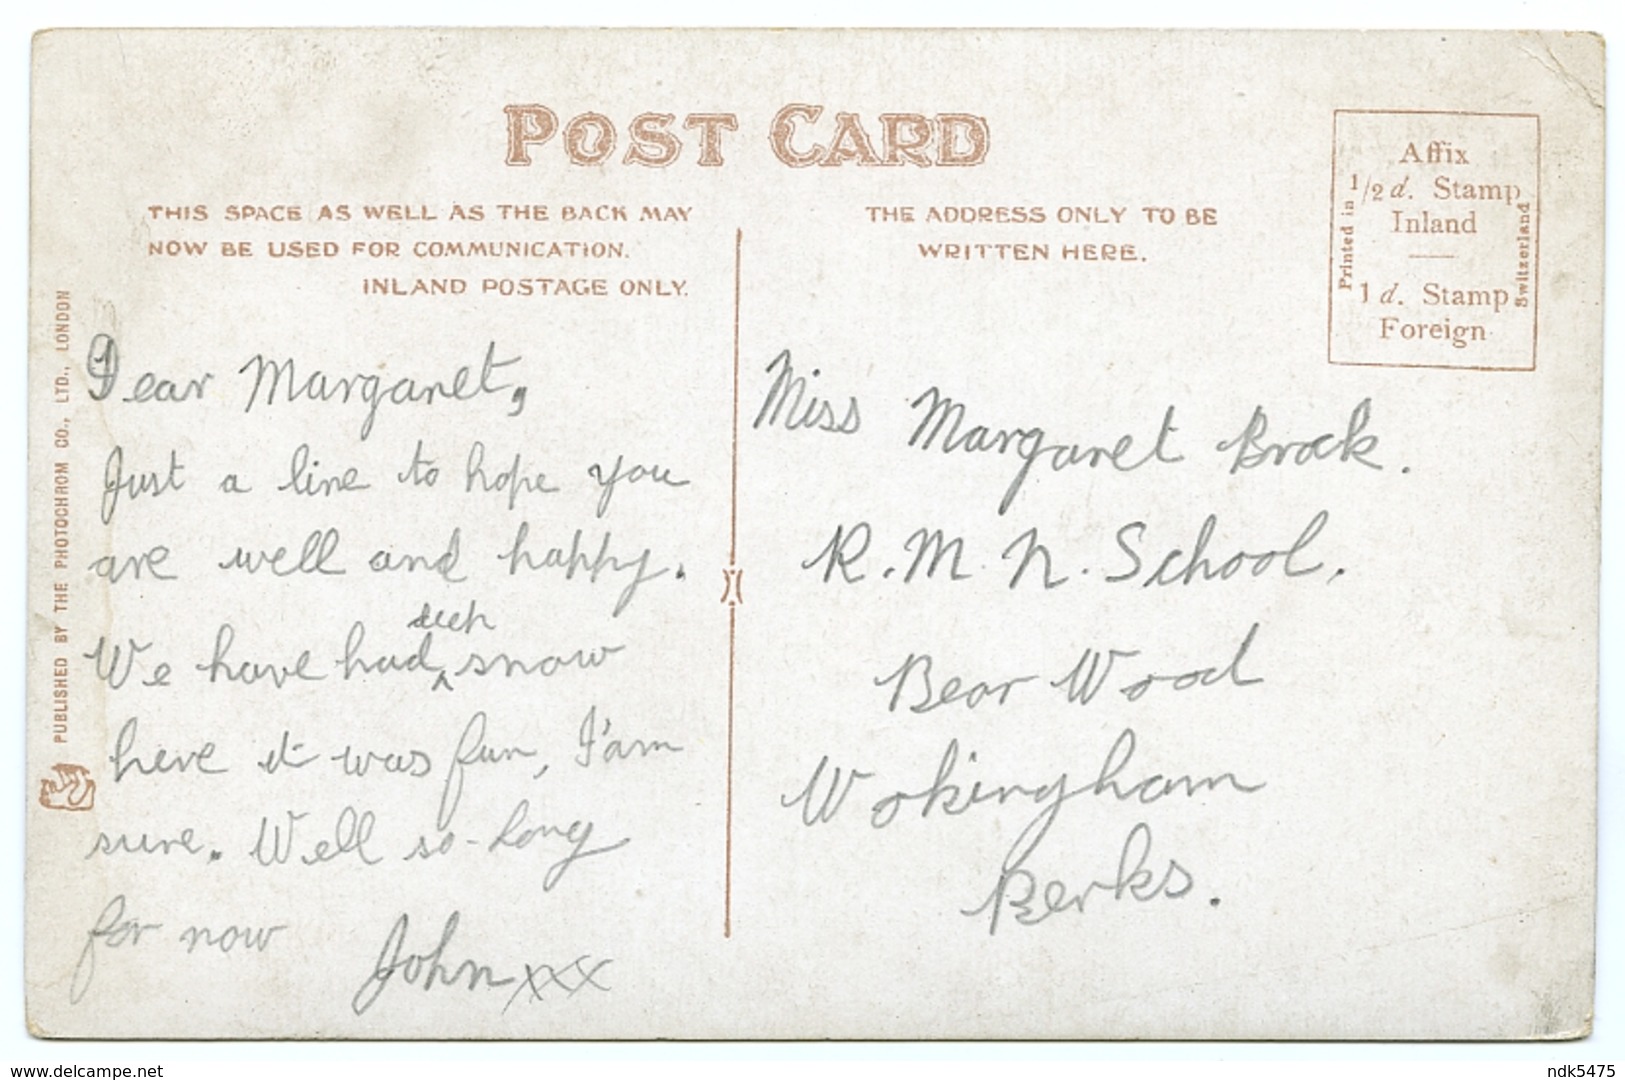 POST CARD
THIS SPACE AS WELL AS THE BACK MAY
NOW BE USED FOR COMMUNICATION.
INLAND POSTAGE ONLY.
THE ADDRESS ONLY TO BE
WRITTEN HERE.
Affix
1/2 d. Stamp
Inland
1 d. Stamp
Foreign
Printed in
Switzerland
PUBLISHED BY THE PHOTOCHROM CO., LTD., LONDON
Dear Margaret,
Just a line to hope you
are well and happy.
deep
We have had ^ snow
here it was fun, I'am
sure. Well so-long
for now
John xxx
Miss Margaret Brock.
R.M.N. School.
Bear Wood
Wokingham
Berks.
www.delcampe.net
ndk5475